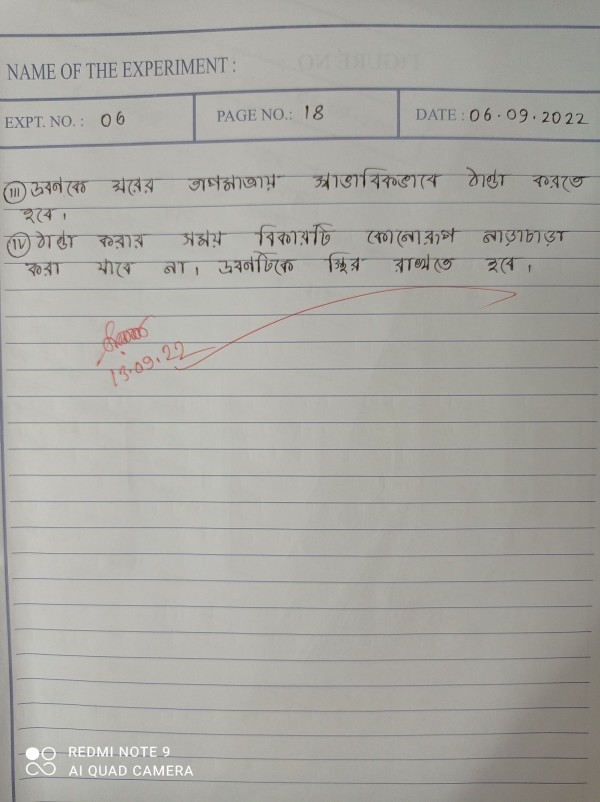 NAME OF THE EXPERIMENT :
EXPT. NO. : 06 PAGE NO.: 18 DATE : 06.09.2022
(III) দ্রবনকে ঘরের তাপমাত্রায় স্বাভাবিকভাবে ঠান্ডা করতে
হবে।
(IV) ঠান্ডা করার সময় বিকারটি কোনোরূপ নাড়াচাড়া
করা যাবে না। দ্রবনটিকে স্থির রাখতে হবে।
13.09.22
REDMI NOTE 9
AI QUAD CAMERA